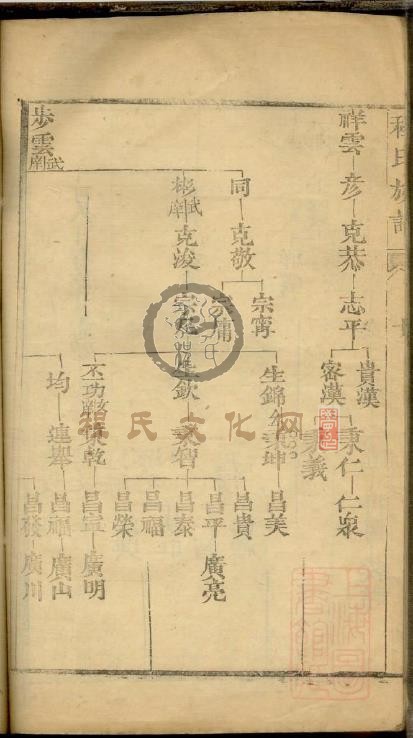 程氏族譜
祥雲 彥 克恭 志平
貴漢 秉仁 仁泉
容漢 秉義
同 克敬
宗寧
宗庸
生錦 秉坤 昌美
步雲 武庠
彬 武庠 克浚
生欽 秉智
昌貴
昌平 廣亮
昌泰
昌福
昌榮
丕功 秉乾 昌宣 廣明
均 連舉
昌福 廣山
昌發 廣川
程氏文化网